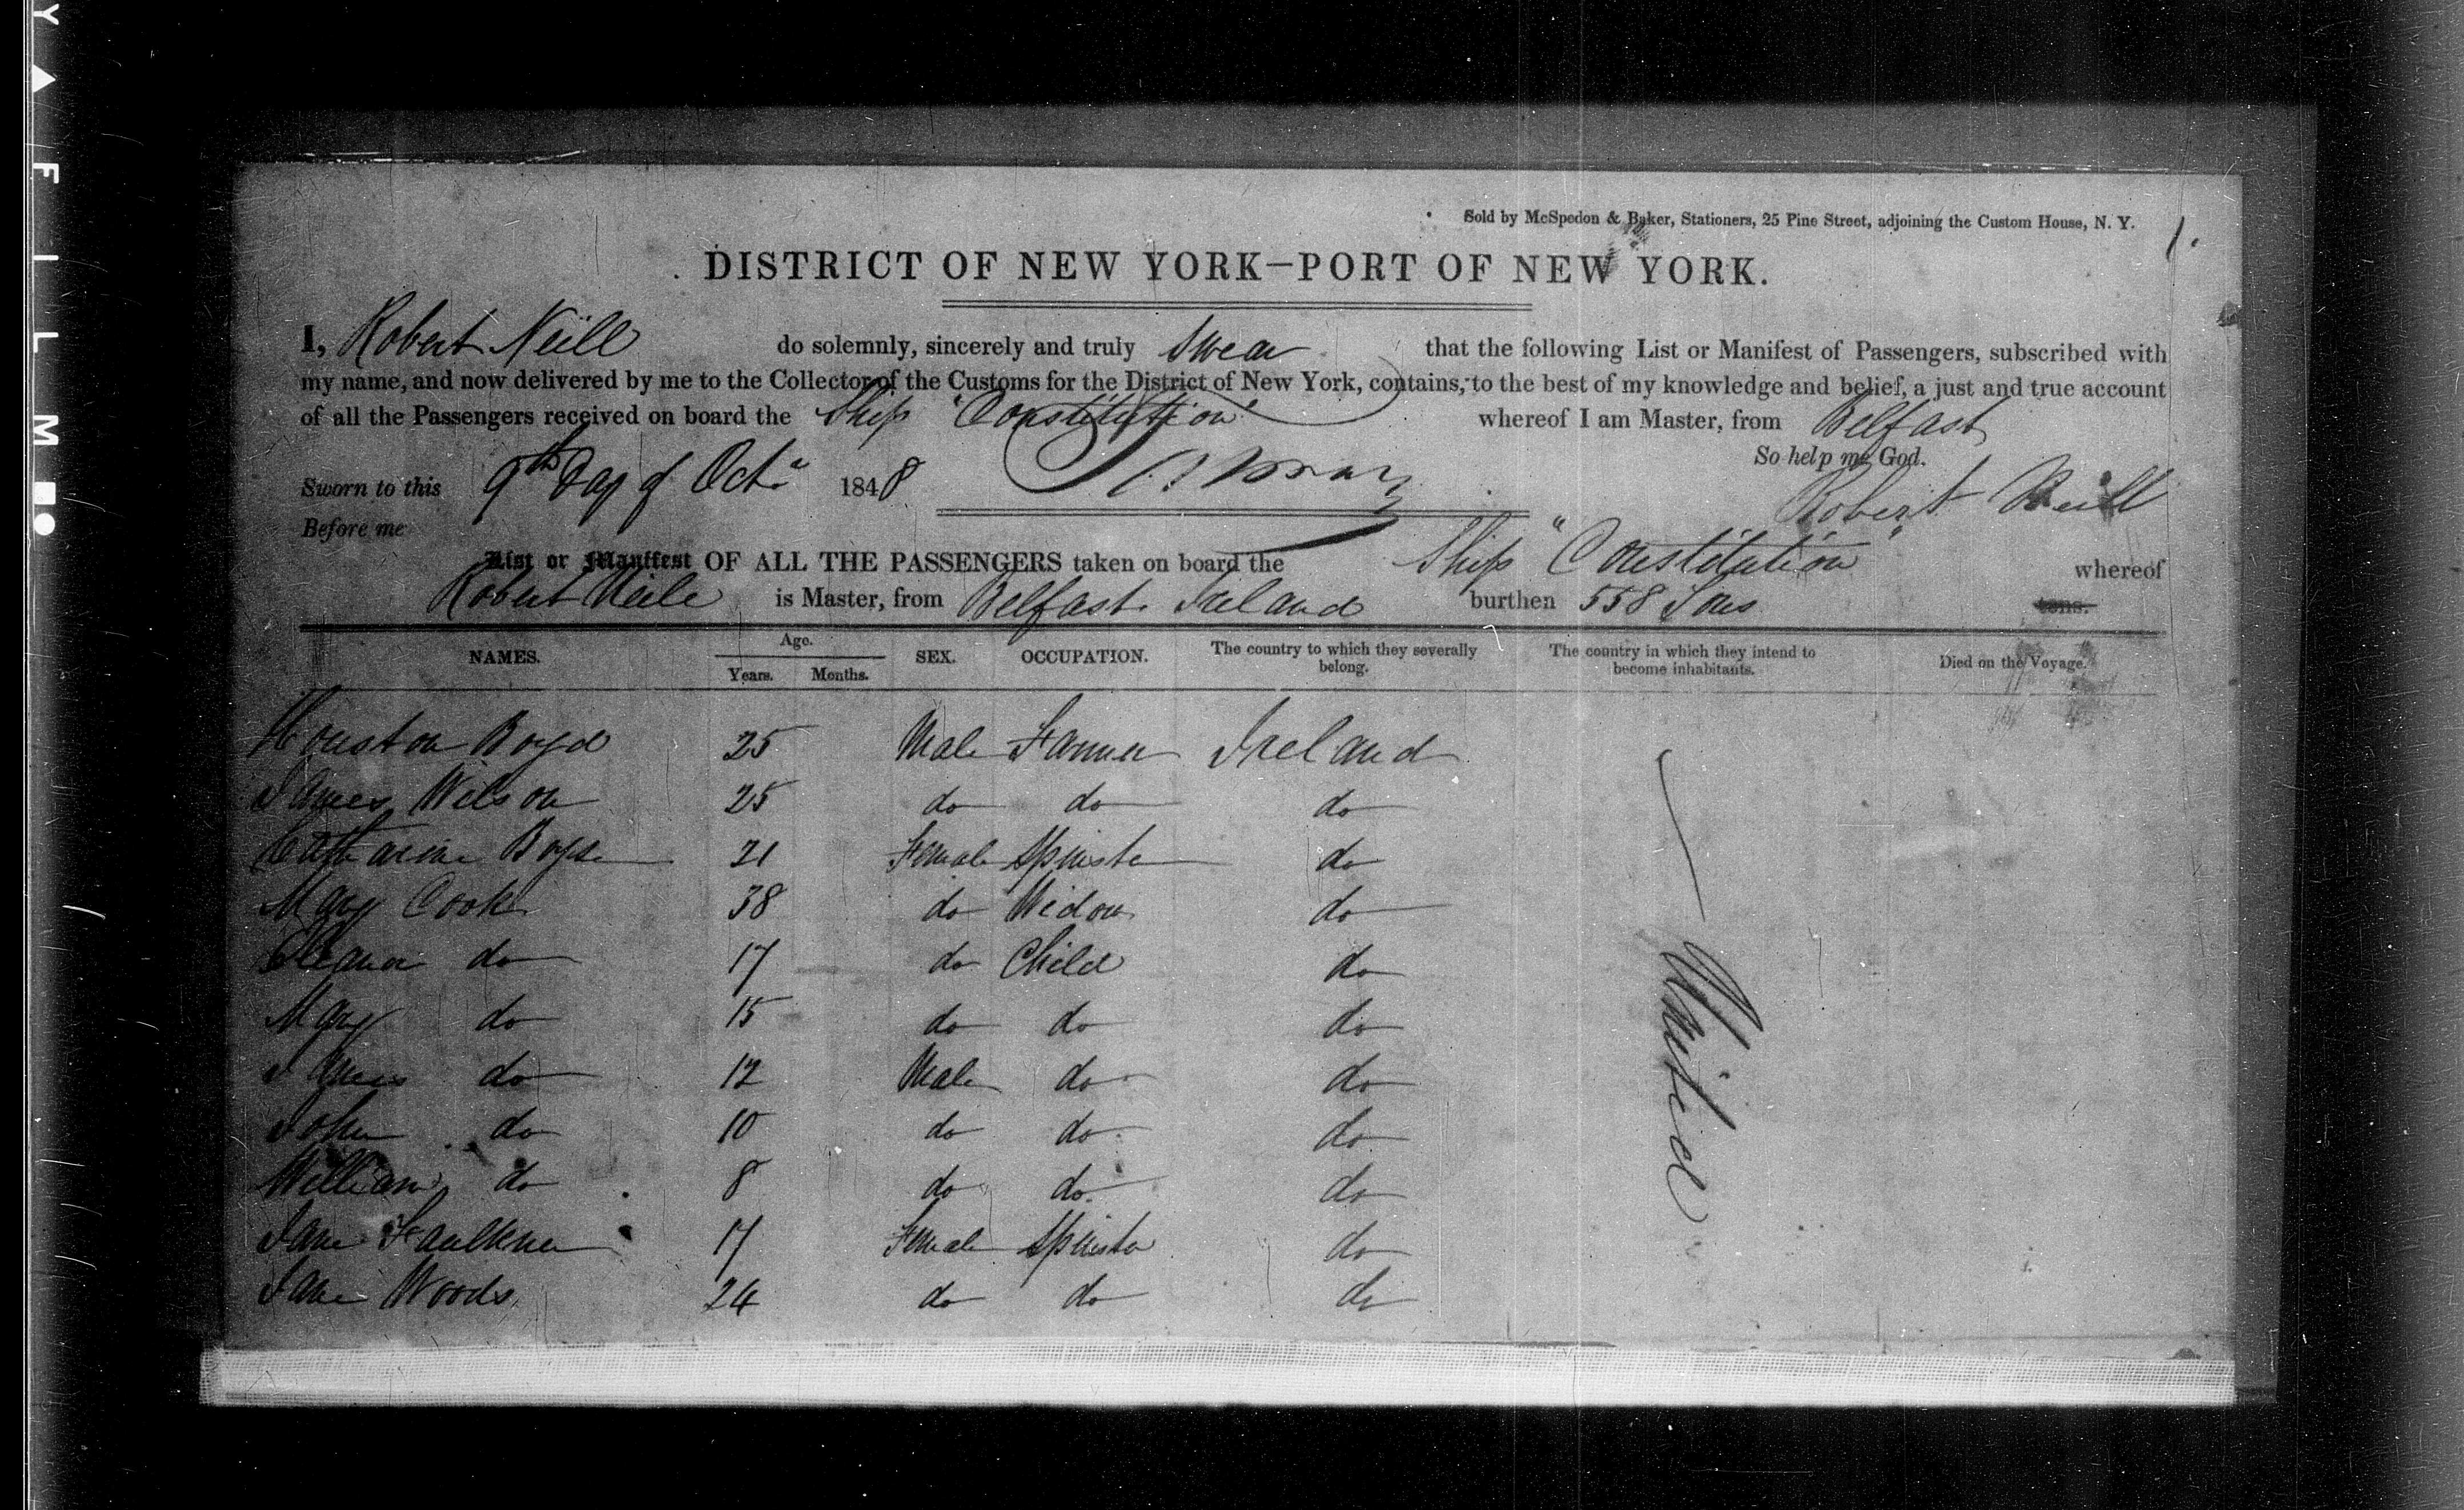 Sold by McSpedon & Baker, Stationers, 25 Pine Street, adjoining the Custom House, N. Y.
1.
DISTRICT OF NEW YORK—PORT OF NEW YORK.
I, Robert Neill do solemnly, sincerely and truly Swear that the following List or Manifest of Passengers, subscribed with
my name, and now delivered by me to the Collector of the Customs for the District of New York, contains, to the best of my knowledge and belief, a just and true account
of all the Passengers received on board the Ship "Constitution" whereof I am Master, from Belfast
So help me God.
Sworn to this 9th Day of Oct. 1848 Robert Neill
Before me
List or Manifest OF ALL THE PASSENGERS taken on board the Ship "Constitution" whereof
Robert Neile is Master, from Belfast Ireland burthen 558 Tons tons.
NAMES. Age. Years. Months. SEX. OCCUPATION. The country to which they severally belong. The country in which they intend to become inhabitants. Died on the Voyage.
Houston Boyd 25 Male Farmer Ireland
James Wilson 25 do do do
Catharine 21 Female Spinster do
Mary Cook 38 do Widow do
Eleanor do 17 do Child do
Mary do 15 do do do
James do 12 Male do do
John do 10 do do do
William do 8 do do do
Jane Faulkner 17 Female Spinster do
Jane Woods 24 do do do
United
FILM